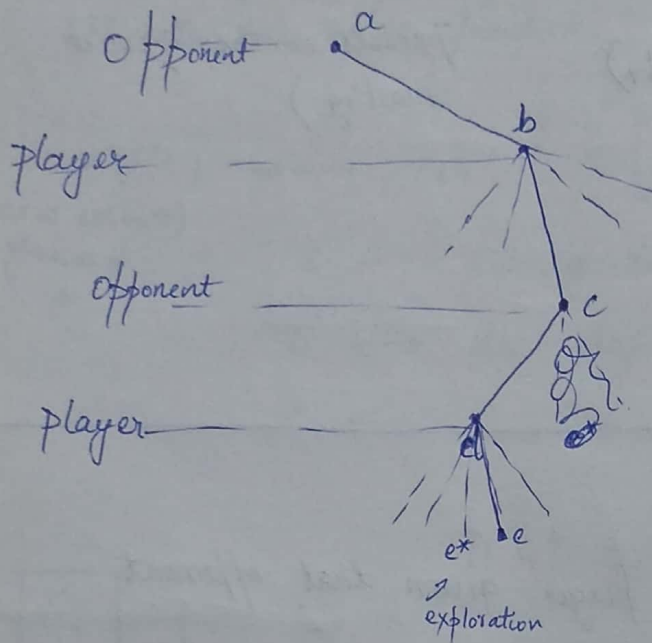 a
Opponent
b
player
Opponent
c
player
d
e* e
exploration